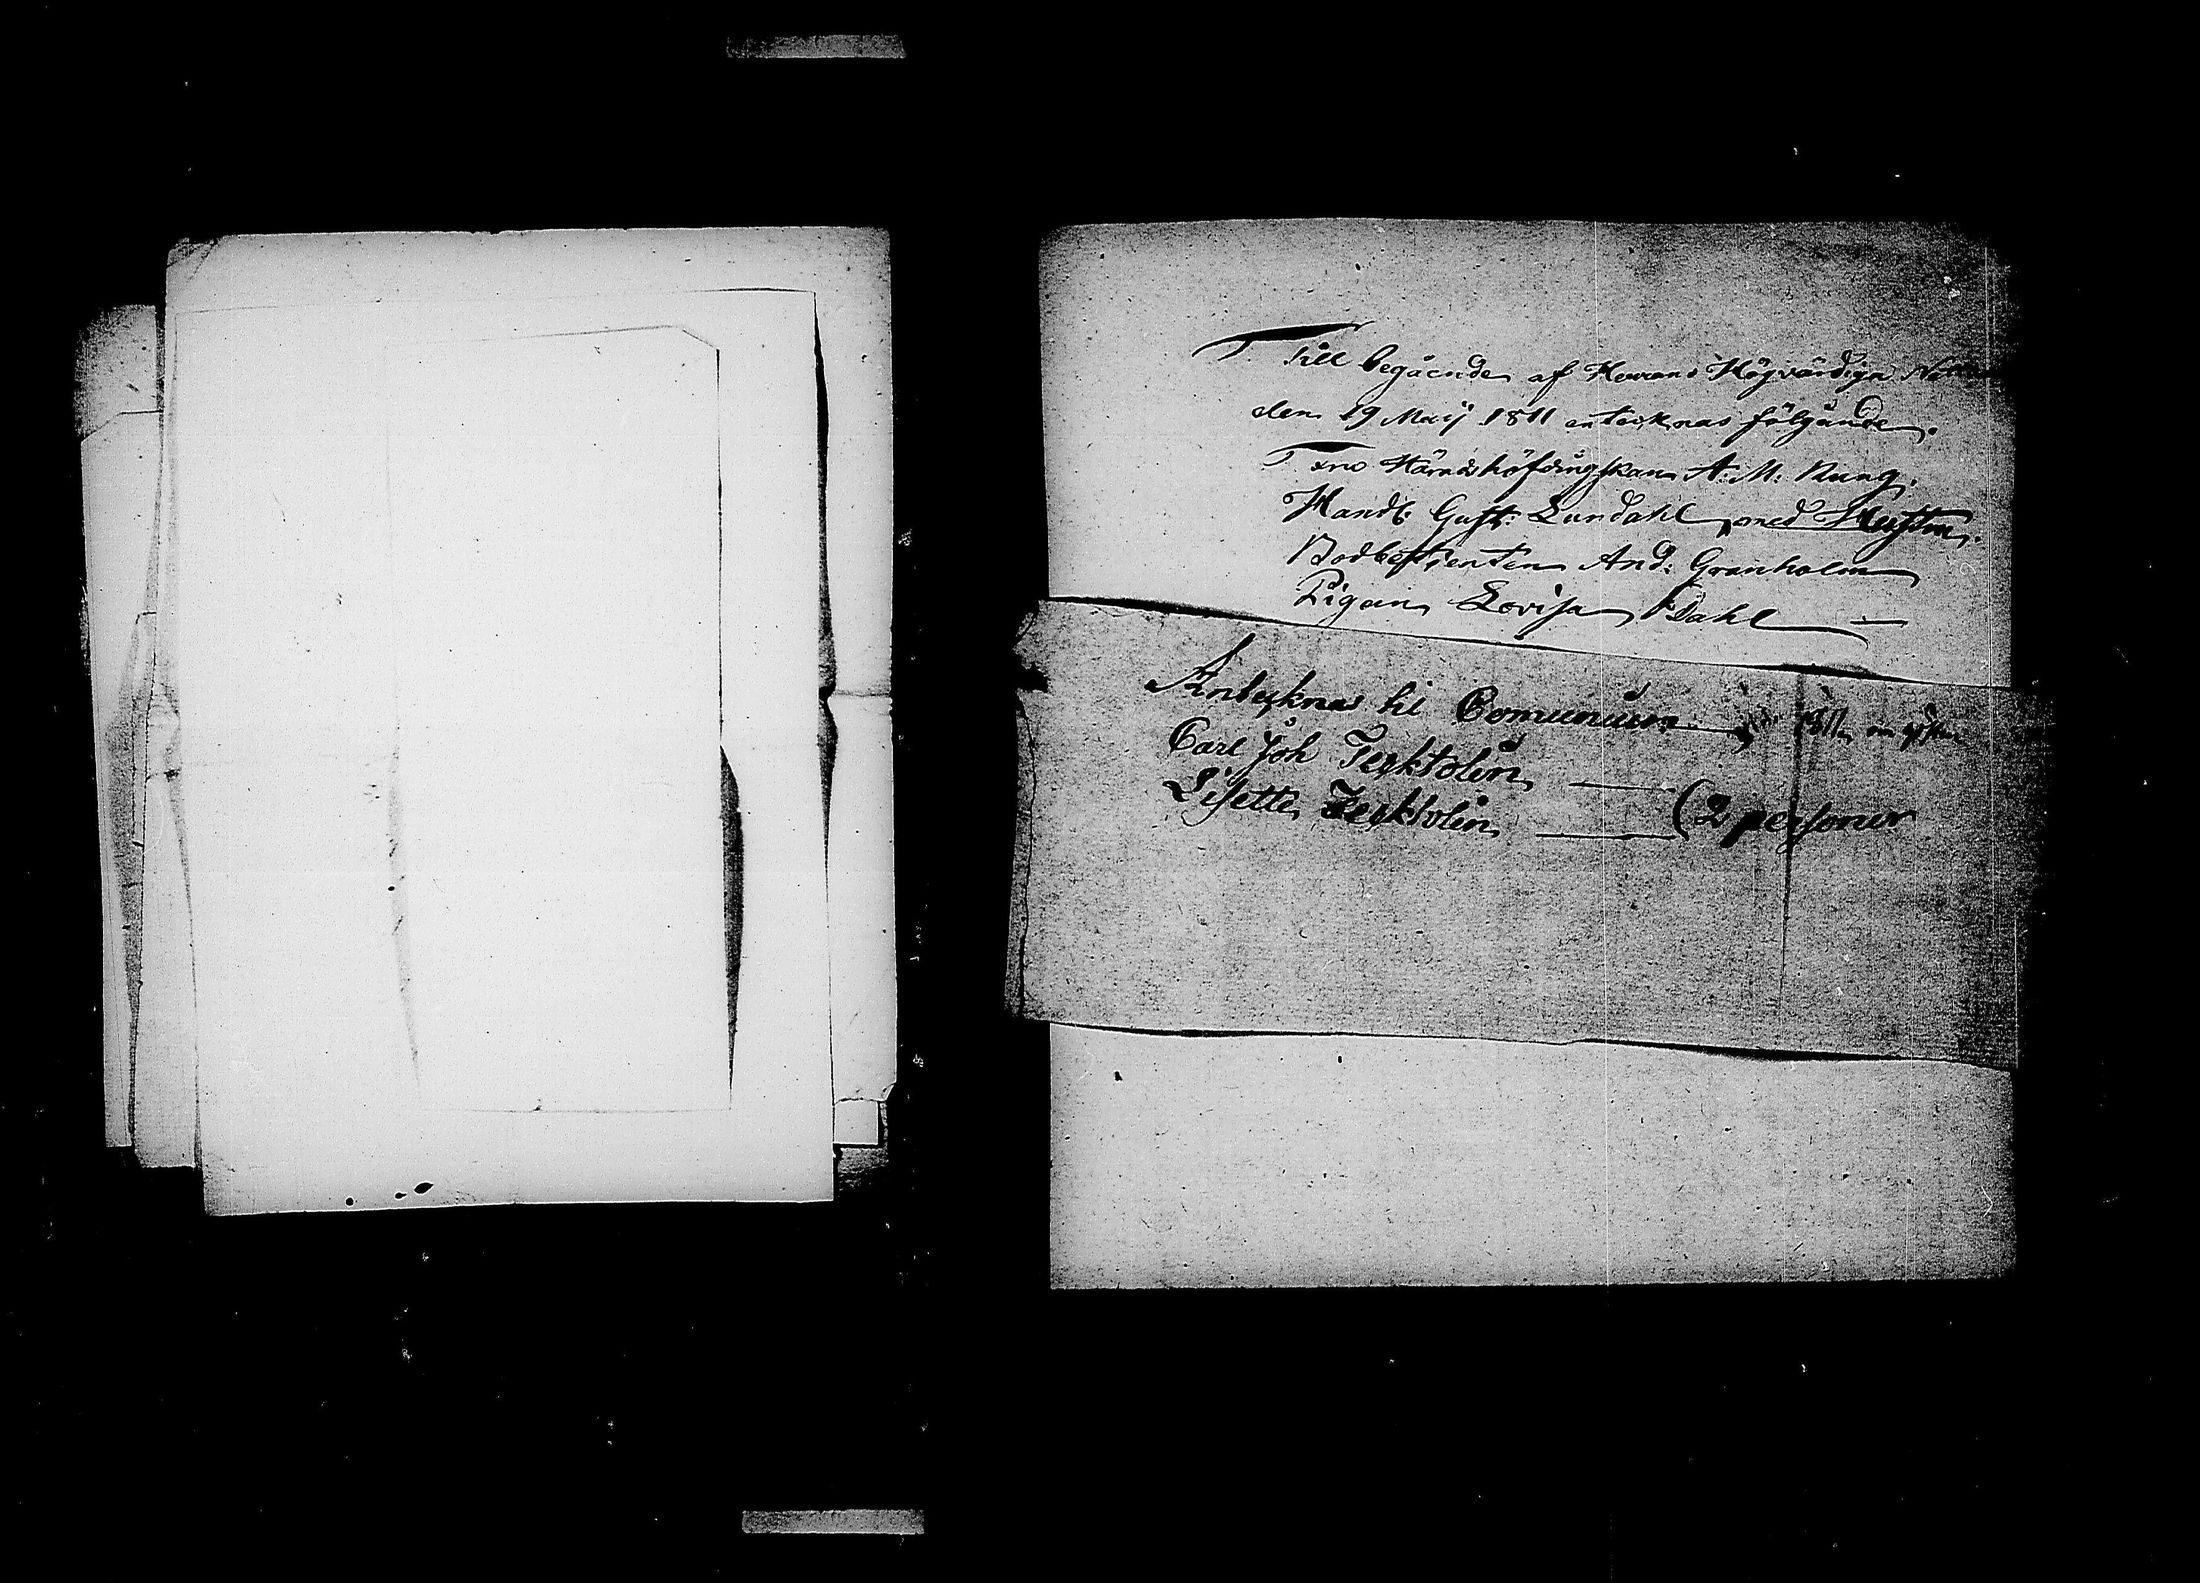 Till begående af Herrans Högvärdiga
den 19 Maij 1811 antecknas följande.
Fru Häradshöfdingskan A: M: Rung.
Handl: Gust: Lundahl med Hustru.
Bodbetjenten And: Granholm
Pigan Lovisa Dahl
Anteyknas til Comunion
Carl Joh Teyktolin
Lisette Teyktolin (2 personer